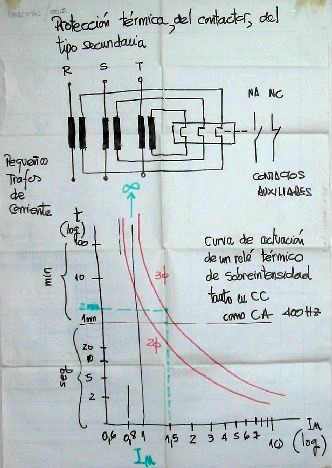 Protección térmica, del contactor, del
tipo secundaria
R S T
NA NC
Pequeños
Trafos
de
corriente
CONTACTOS
AUXILIARES
t
(log)
∞
Curva de actuación
de un relé térmico
de sobreintensidad
tanto en CC
como CA - 400 Hz
100
10
min
3φ
2min
1min
2φ
20
10
5
2
seg
0,6 0,8 1 1,5 2 3 4 5 6 7 10
In
In
(log)